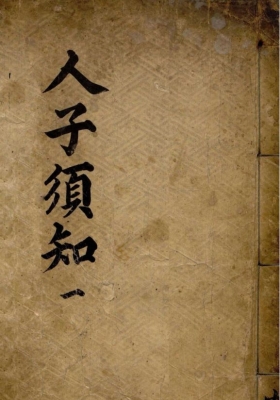 人子須知一